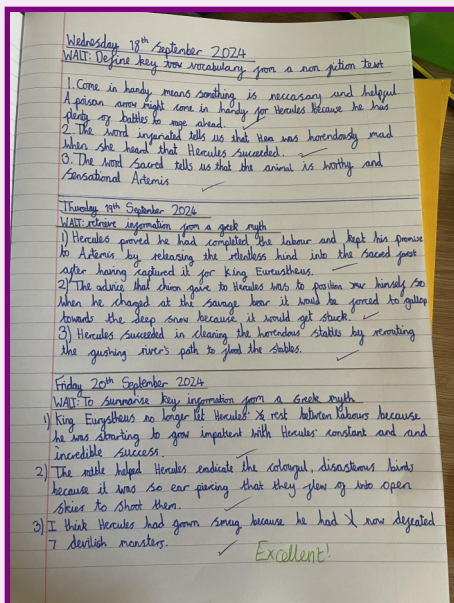 Wednesday 18th September 2024
WALT: Define key vocabulary from a non fiction text
1. Come in handy means something is neccasary and helpful
A poison arrow might come in handy for Hercules because he has
plenty of battles to rage ahead.
2. The word infuriated tells us that Hera was horendously mad
when she heard that Hercules succeeded.
3. The word sacred tells us that the animal is worthy and
sensational Artemis
Thursday 19th September 2024
WALT: retrieve information from a greek myth
1) Hercules proved he had completed the labour and kept his promise
to Artemis by releasing the relentless hind into the sacred forest
after having captured it for King Eurcustheus.
2) The advice that chiron gave to Hercules was to position himself so
when he charged at the savage boar it would be forced to gallop
towards the deep snow because it would get stuck.
3) Hercules succeeded in cleaning the horendous stables by rerouting
the gushing river's path to flood the stables.
Friday 20th September 2024
WALT: To summarise key information from a Greek myth
1) King Eurystheus no longer let Hercules rest between labours because
he was starting to grow impatient with Hercules' constant and and
incredible success.
2) The rattle helped Hercules eradicate the colourful, disasterous birds
because it was so ear piercing that they flew of into open
skies to shoot them.
3) I think Hercules had grown smug because he had now defeated
7 devilish monsters.
Excellent!